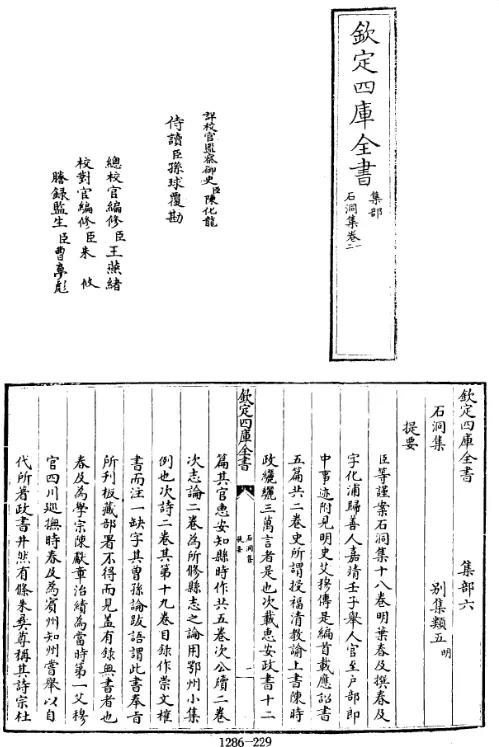 欽定四庫全書
集部
石洞集卷一
詳校官監察御史臣陳化龍
侍讀臣孫球覆勘
總校官編修臣王燕緒
校對官編修臣朱攸
謄錄監生臣曹夢彪
欽定四庫全書 集部六
石洞集 別集類五明
提要
臣等謹案石洞集十八卷明葉春及撰春及
字化浦歸善人嘉靖壬子舉人官至戶部郎
中事迹附見明史艾穆傳是編首載應詔書
五篇共二卷史所謂授福清教諭上書陳時
政纚纚三萬言者是也次載惠安政書十二
欽定四庫全書
石洞集
提要
篇其官惠安知縣時作共五卷次公牘二卷
次志論二卷為所修縣志之論用鄂州小集
例也次詩二卷其第十九卷目錄作崇文榷
書而注一缺字其曾孫論跋語謂此書奉旨
所刊板藏部署不得而見蓋有錄無書者也
春及為學宗陳獻章治績為當時第一艾穆
官四川巡撫時春及為賓州知州嘗舉以自
代所著政書井然有條朱彝尊稱其詩宗杜
1286-229